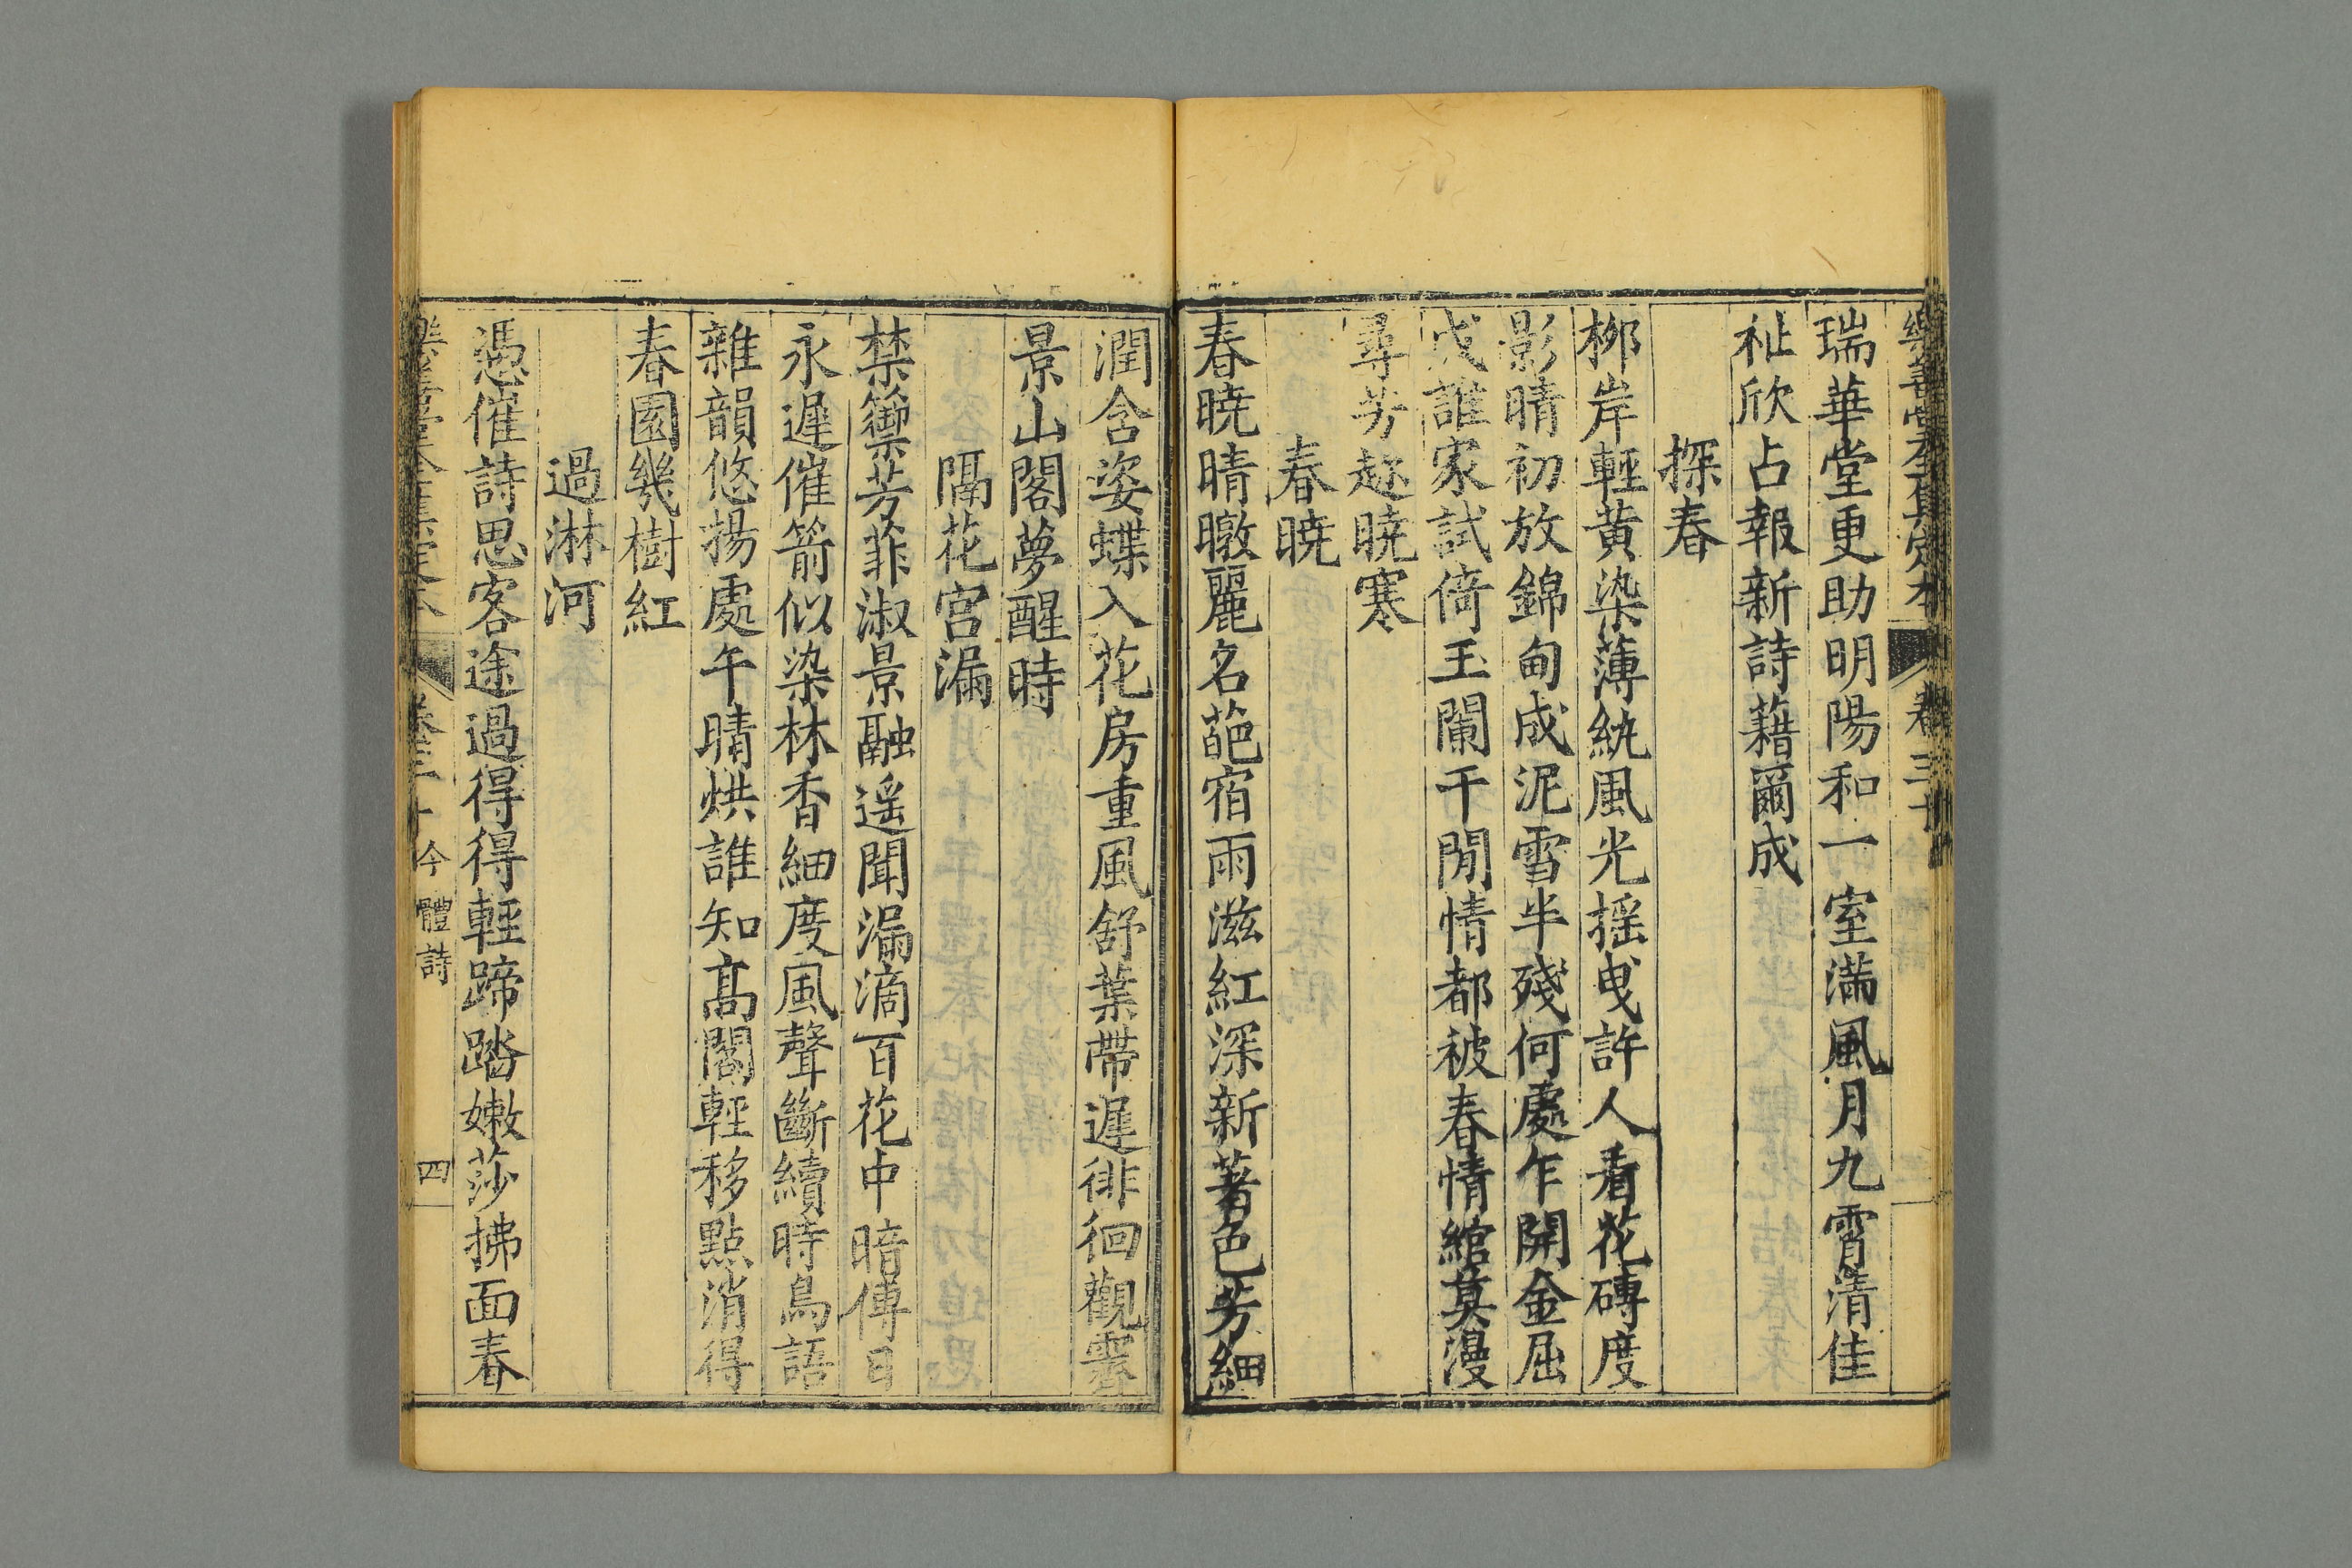 樂善堂全集定本 卷三十
瑞華堂更助明陽和一室滿風月九霄清佳
祉欣占報新詩藉爾成
探春
栁岸輕黃染薄紈風光摇曳許人看花磚度
影晴初放錦甸成泥雪半殘何處乍開金屈
戌誰家試倚玉闌干閒情都被春情綰莫漫
尋芳趂曉寒
春曉
春曉晴暾麗名葩宿雨滋紅深新著色芳細
潤含姿蝶入花房重風舒葉帶遲徘徊觀霽
景山閣夢醒時
隔花宫漏
禁籞芳菲淑景融遥聞漏滴百花中暗傳日
永遲催箭似染林香細度風聲斷續時鳥語
雜韻悠揚處午晴烘誰知高閣輕移點消得
春園幾樹紅
過淋河
憑催詩思客途過得得輕蹄踏嫩莎拂面春
樂善堂全集定本 卷三十 今體詩 四